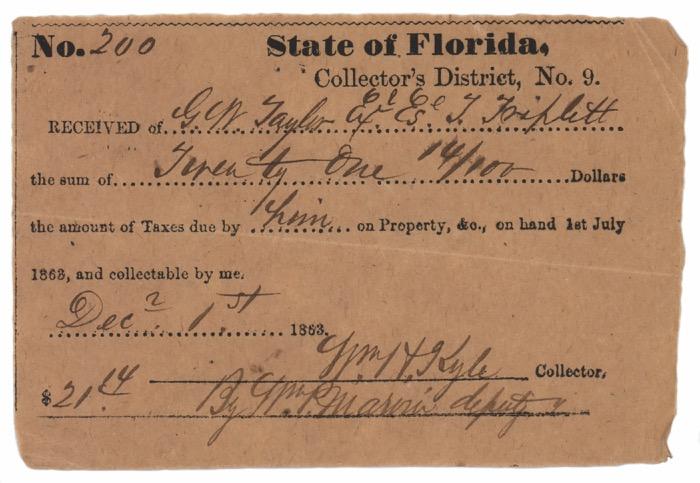 No. 200 State of Florida,
Collector's District, No. 9.
RECEIVED of G W Taylor Ex Es T. Triplett
the sum of Twenty One 14/100 Dollars
the amount of Taxes due by him on Property, &c., on hand 1st July
1863, and collectable by me.
Dec 1st 1863.
Wm H. Kyle Collector.
$21.14 By Wm deputy